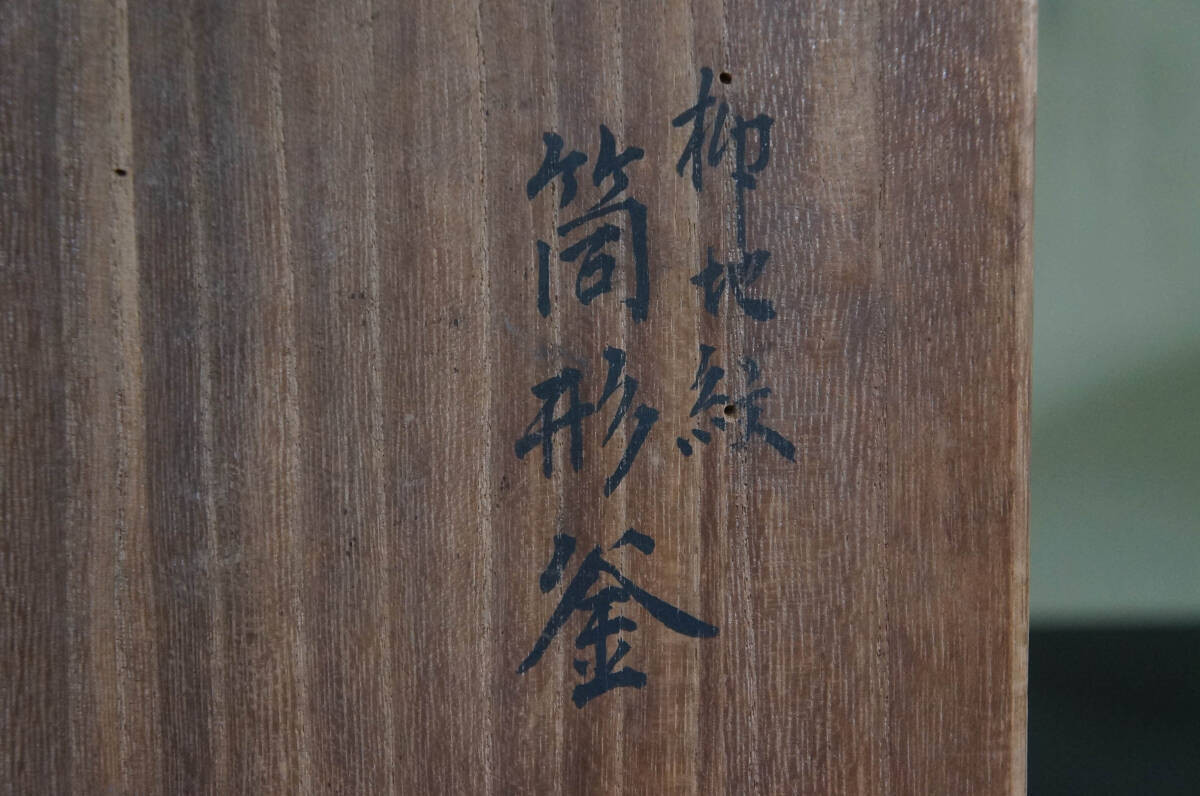 柳地紋
筒形釜